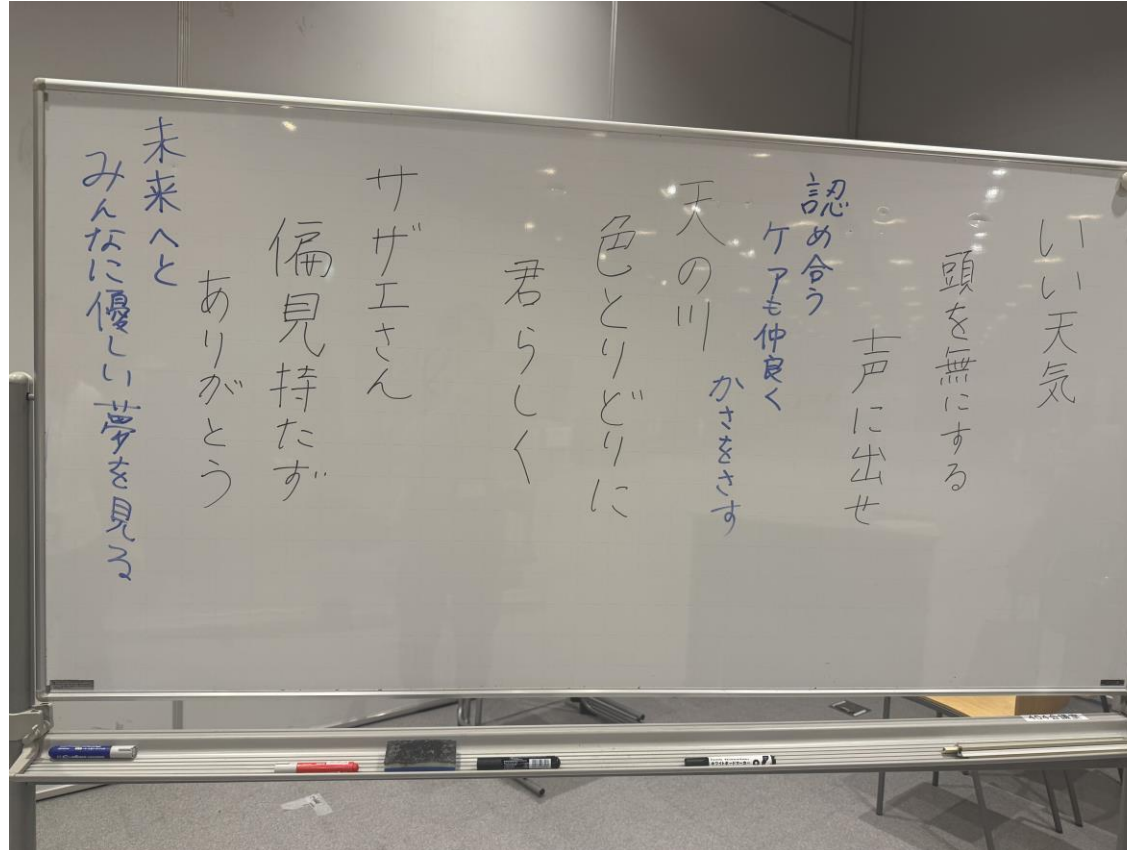 いい天気
頭を無にする
声に出せ
認め合う
ケアも仲良く
かさをさす
天の川
色とりどりに
君らしく
サザエさん
偏見持たず
ありがとう
未来へと
みんなに優しい夢を見る